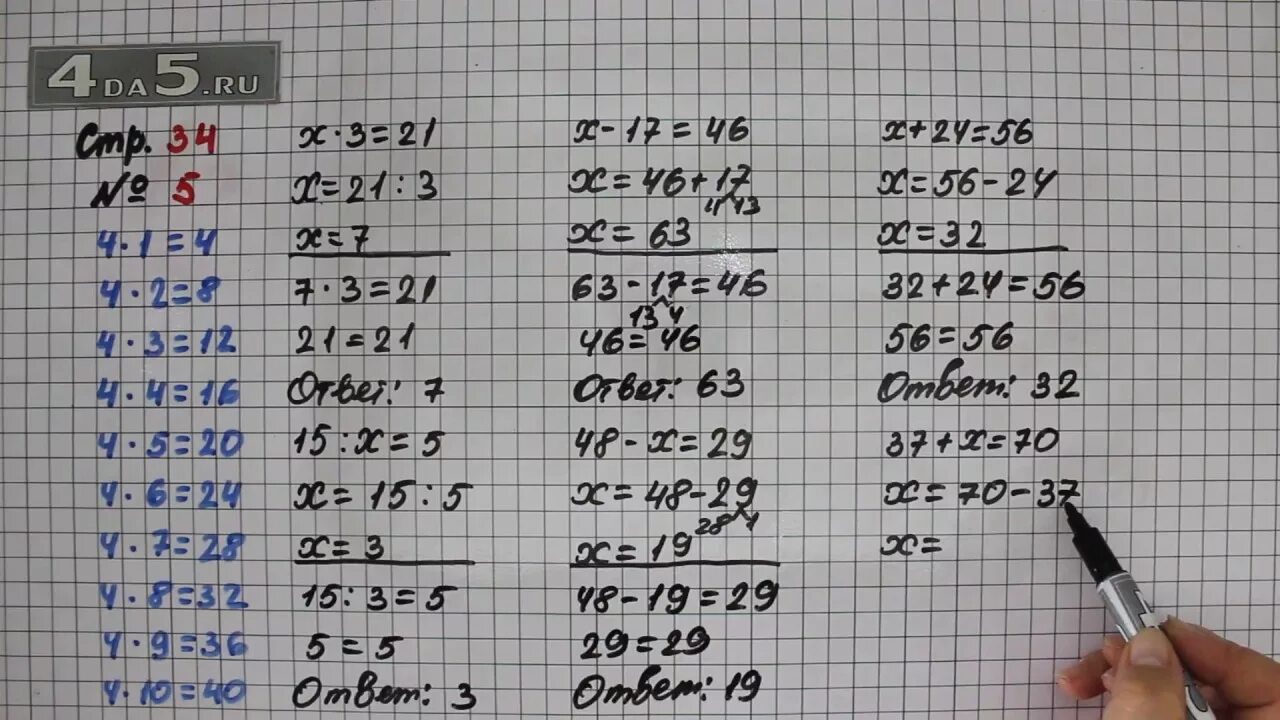 4DA5.RU
Стр. 34
№ 5
4·1=4
4·2=8
4·3=12
4·4=16
4·5=20
4·6=24
4·7=28
4·8=32
4·9=36
4·10=40
x·3=21
x=21:3
x=7
7·3=21
21=21
Ответ: 7
15:x=5
x=15:5
x=3
15:3=5
5=5
Ответ: 3
x-17=46
x=46+17
4 13
x=63
63-17=46
13 4
46=46
Ответ: 63
48-x=29
x=48-29
28 1
x=19
48-19=29
29=29
Ответ: 19
x+24=56
x=56-24
x=32
32+24=56
56=56
Ответ: 32
37+x=70
x=70-37
x=